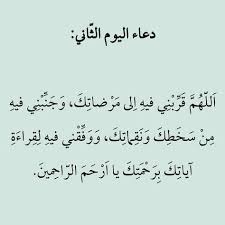 دعاء اليوم الثّاني:
اَللّهُمَّ قَرِّبْنِي فيهِ اِلى مَرْضاتِكَ، وَجَنِّبْني فيهِ
مِنْ سَخَطِكَ وَنَقِماتِكَ، وَوَفِّقْني فيهِ لِقِراءَةِ
آياتِكَ بِرَحْمَتِكَ يا اَرْحَمَ الرّاحِمينَ.